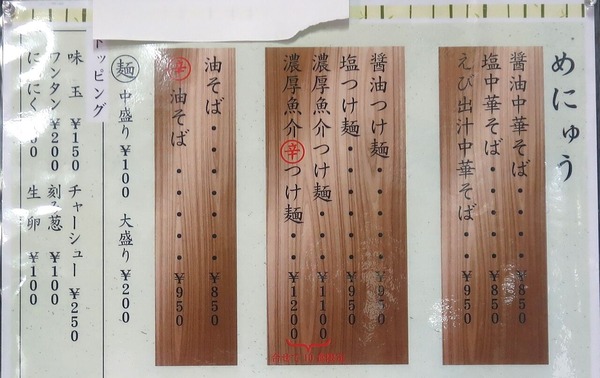 めにゅう
醤油中華そば・・・・・¥850
塩中華そば・・・・・¥850
えび出汁中華そば・・¥950
醤油つけ麺・・・・・¥950
塩つけ麺・・・・・¥950
濃厚魚介つけ麺・・・¥1100
濃厚魚介辛つけ麺・・¥1200
油そば・・・・・・¥850
辛油そば・・・・・¥950
麺 中盛り¥100 大盛り¥200
トッピング
味玉 ¥150 チャーシュー ¥250
ワンタン ¥200 刻み葱 ¥100
にんにく 生卵 ¥100